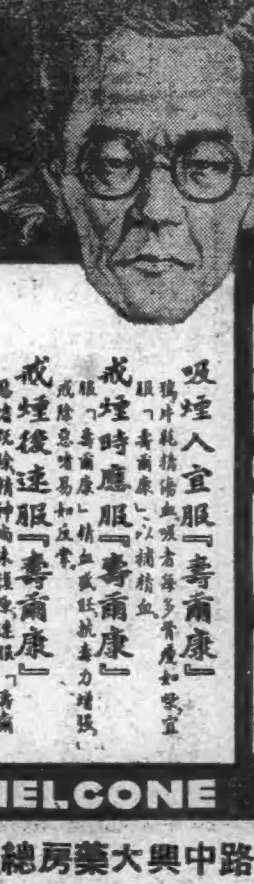 吸煙人宜服『壽爾康』
鴉片耗精傷血吸者每多骨瘦如柴宜
服「壽爾康」以補精血
戒煙時應服『壽爾康』
服「壽爾康」精血盛旺抗毒力增强、
戒除惡嗜易如反掌
戒煙後速服『壽爾康』
惡嗜既除精神尚未復原速服「壽爾
ELCONE
路中興大藥房總